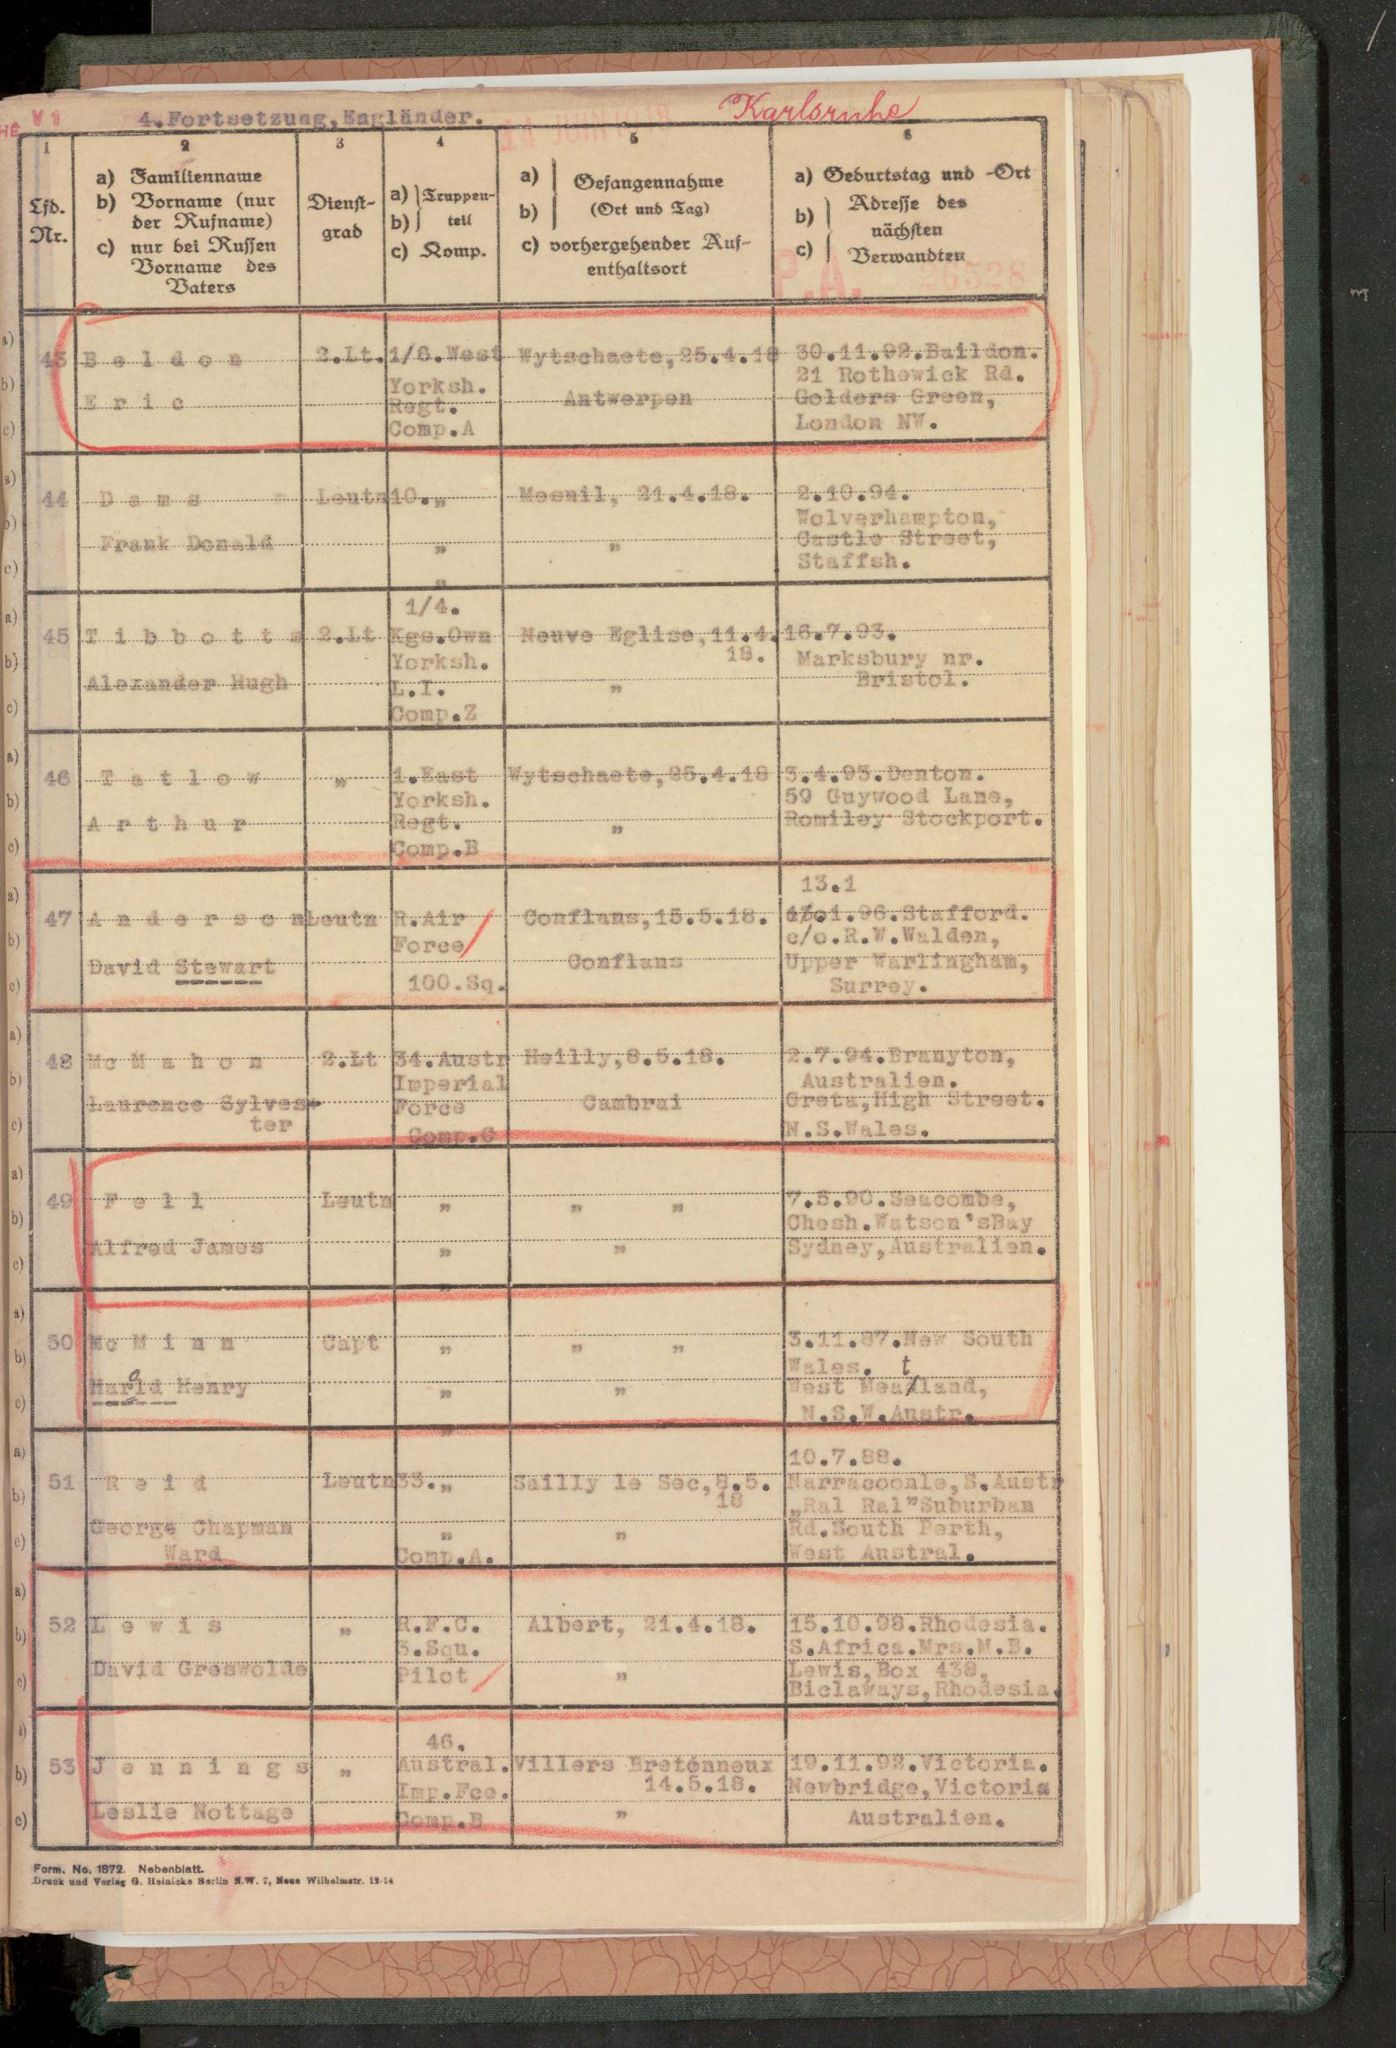 V1
4.Fortsetzung,Engländer.
Karlsruhe
1 2 3 4 5 6
Lfd. Nr.
a) Familienname
b) Vorname (nur der Rufname)
c) nur bei Russen Vorname des Vaters
Dienst-
grad
a) Truppen-
b) teil
c) Komp.
a) Gefangennahme
b) (Ort und Tag)
c) vorhergehender Auf-
enthaltsort
a) Geburtstag und -Ort
b) Adresse des
nächsten
c) Verwandten
P.A. 26528
43 Beldon 2.Lt. 1/6.West Wytschaete,25.4.18 30.11.92.Baildon.
Yorksh. 21 Rothewick Rd.
Eric Regt. Antwerpen Golders Green,
Comp.A London NW.
44 Dams Leutn 10. „ Mesnil, 21.4.18. 2.10.94.
Wolverhampton,
Frank Donald „ „ Castle Street,
„ Staffsh.
1/4.
45 Tibbotts 2.Lt Kgs.Own Neuve Eglise,11.4. 16.7.93.
Yorksh. 18. Marksbury nr.
Alexander Hugh L.I. „ Bristol.
Comp.Z
46 Tatlow „ 1.East Wytschaete,25.4.18 3.4.93.Denton.
Yorksh. 59 Guywood Lane,
Arthur Regt. „ Romiley Stockport.
Comp.B
13.1
47 Anderson Leutn R.Air Conflans,15.5.18. 1.96.Stafford.
Force c/o.R.W.Walden,
David Stewart Conflans Upper Warlingham,
100.Sq. Surrey.
48 McMahon 2.Lt 34.Austr Heilly,8.5.18. 2.7.94.Branyton,
Imperial Australien.
Laurence Sylves- Force Cambrai Greta,High Street.
ter Comp.C N.S.Wales.
49 Fell Leutn „ „ „ 7.5.90.Seacombe,
Chesh.Watson'sBay
Alfred James „ „ Sydney,Australien.
„
50 McMinn Capt „ „ „ 3.11.87.New South
Wales. t
Harald Henry „ „ West Meatland,
„ N.S.W.Austr.
10.7.88.
51 Reid Leutn 33. „ Sailly le Sec,8.5. Narracoonle,S.Austr
18 „Ral Ral"Suburban
George Chapman „ „ Rd.South Perth,
Ward Comp.A. West Austral.
52 Lewis „ R.F.C. Albert, 21.4.18. 15.10.98.Rhodesia.
3.Squ. S.Africa.Mrs.M.B.
David Greswolde Pilot „ Lewis,Box 438,
Biclaways,Rhodesia.
46.
53 Jennings „ Austral. Villers Bretonneux 19.11.92.Victoria.
Imp.Fce. 14.5.18. Newbridge,Victoria
Leslie Nottage Comp.B „ Australien.
Form. No. 1872. Nebenblatt.
Druck und Verlag G. Heinicke Berlin N.W. 7, Neue Wilhelmstr. 12-14